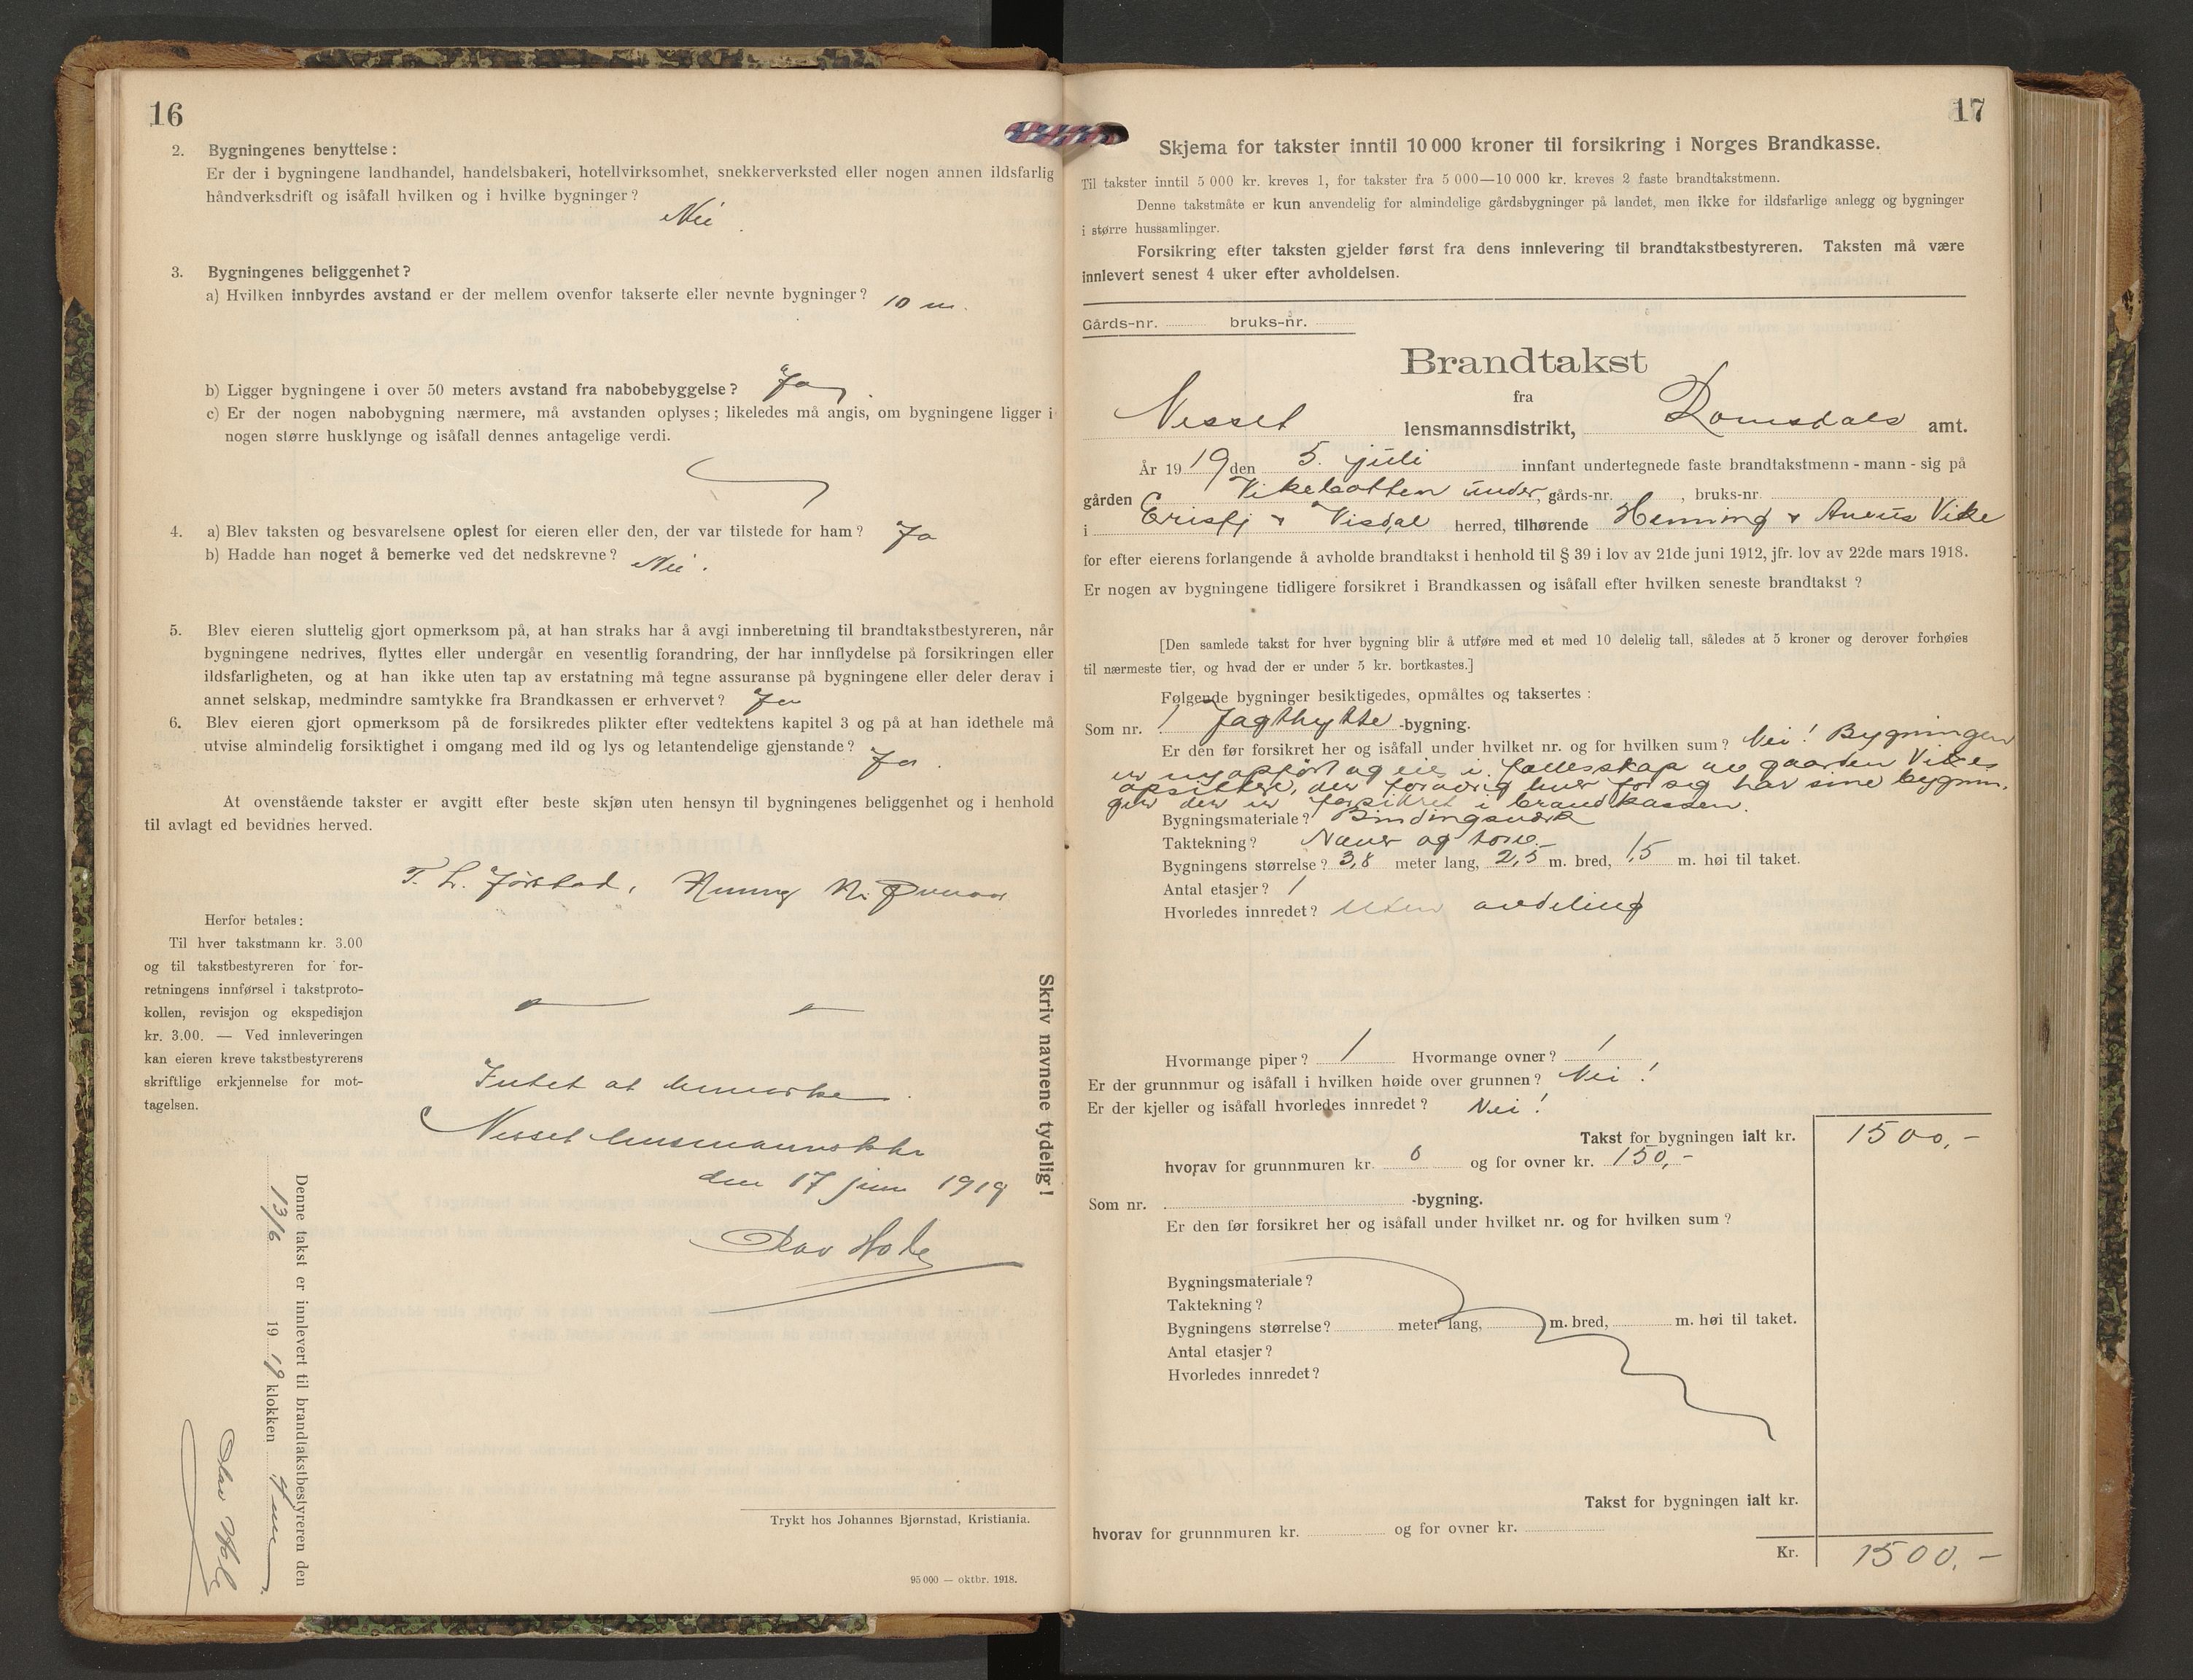 16
2. Bygningenes benyttelse:
Er der i bygningene landhandel, handelsbakeri, hotellvirksomhet, snekkerverksted eller nogen annen ildsfarlig
håndverksdrift og isåfall hvilken og i hvilke bygninger?
Nei.
3. Bygningenes beliggenhet?
a) Hvilken innbyrdes avstand er der mellem ovenfor takserte eller nevnte bygninger? 10 m.
b) Ligger bygningene i over 50 meters avstand fra nabobebyggelse? Ja.
c) Er der nogen nabobygning nærmere, må avstanden oplyses; likeledes må angis, om bygningene ligger i
nogen større husklynge og isåfall dennes antagelige verdi.
4. a) Blev taksten og besvarelsene oplest for eieren eller den, der var tilstede for ham? Ja
b) Hadde han noget å bemerke ved det nedskrevne? Nei.
5. Blev eieren sluttelig gjort opmerksom på, at han straks har å avgi innberetning til brandtakstbestyreren, når
bygningene nedrives, flyttes eller undergår en vesentlig forandring, der har innflydelse på forsikringen eller
ildsfarligheten, og at han ikke uten tap av erstatning må tegne assuranse på bygningene eller deler derav i
annet selskap, medmindre samtykke fra Brandkassen er erhvervet? Ja
6. Blev eieren gjort opmerksom på de forsikredes plikter efter vedtektens kapitel 3 og på at han idethele må
utvise almindelig forsiktighet i omgang med ild og lys og letantendelige gjenstande? Ja.
At ovenstående takster er avgitt efter beste skjøn uten hensyn til bygningenes beliggenhet og i henhold
til avlagt ed bevidnes herved.
T. L. Jørstad, Henning N.
Herfor betales:
Til hver takstmann kr. 3.00
og til takstbestyreren for for-
retningens innførsel i takstproto-
kollen, revisjon og ekspedisjon
kr. 3.00. — Ved innleveringen
kan eieren kreve takstbestyrerens
skriftlige erkjennelse for mot-
tagelsen.
Intet at bemerke.
Nesset lensmannsktr
den 17 juni 1919
Olav Hole
Skriv navnene tydelig!
Denne takst er innlevert til brandtakstbestyreren den
13/6 19 19 klokken 9
Olav Hole
Trykt hos Johannes Bjørnstad, Kristiania.
95 000 — oktbr. 1918.
17
Skjema for takster inntil 10 000 kroner til forsikring i Norges Brandkasse.
Til takster inntil 5 000 kr. kreves 1, for takster fra 5 000—10 000 kr. kreves 2 faste brandtakstmenn.
Denne takstmåte er kun anvendelig for almindelige gårdsbygninger på landet, men ikke for ildsfarlige anlegg og bygninger
i større hussamlinger.
Forsikring efter taksten gjelder først fra dens innlevering til brandtakstbestyreren. Taksten må være
innlevert senest 4 uker efter avholdelsen.
Gårds-nr. bruks-nr.
Brandtakst
fra
Nesset lensmannsdistrikt, Romsdals amt.
År 19 19 den 5. juli innfant undertegnede faste brandtakstmenn - mann - sig på
gården Vikebotten under, gårds-nr. , bruks-nr.
i Erisfj & Visdal herred, tilhørende Henning & Anens Vike
for efter eierens forlangende å avholde brandtakst i henhold til § 39 i lov av 21de juni 1912, jfr. lov av 22de mars 1918.
Er nogen av bygningene tidligere forsikret i Brandkassen og isåfall efter hvilken seneste brandtakst?
[Den samlede takst for hver bygning blir å utføre med et med 10 delelig tall, således at 5 kroner og derover forhøies
til nærmeste tier, og hvad der er under 5 kr. bortkastes.]
Følgende bygninger besiktigedes, opmåltes og taksertes:
Som nr. 1 Jagthytte -bygning.
Er den før forsikret her og isåfall under hvilket nr. og for hvilken sum? Nei! Bygningen
er nyopført og eies i fællesskap av gaarden Vikes
opsittere, der forøvrig hver for sig har sine bygnin-
ger der er forsikret i brandkassen.
Bygningsmateriale? Bindingsverk
Taktekning? Næver og torv.-
Bygningens størrelse? 3,8 meter lang, 2,5 m. bred, 1,5 m. høi til taket.
Antal etasjer? 1
Hvorledes innredet? Uten avdeling
Hvormange piper? 1 Hvormange ovner? 1
Er der grunnmur og isåfall i hvilken høide over grunnen? Nei!
Er der kjeller og isåfall hvorledes innredet? Nei!
Takst for bygningen ialt kr. 1500,-
hvorav for grunnmuren kr. 0 og for ovner kr. 150,-
Som nr. -bygning.
Er den før forsikret her og isåfall under hvilket nr. og for hvilken sum?
Bygningsmateriale?
Taktekning?
Bygningens størrelse? meter lang, m. bred, m. høi til taket.
Antal etasjer?
Hvorledes innredet?
Takst for bygningen ialt kr.
hvorav for grunnmuren kr. og for ovner kr.
Kr. 1500,-